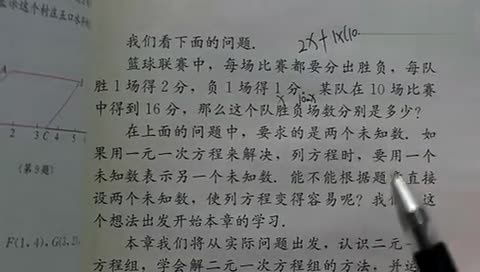 我们看下面的问题.
2x+1×(10
篮球联赛中，每场比赛都要分出胜负，每队
胜1场得2分，负1场得1分. 某队在10场比赛
x 10-x
中得到16分，那么这个队胜负场数分别是多少？
在上面的问题中，要求的是两个未知数. 如
果用一元一次方程来解决，列方程时，要用一个
未知数表示另一个未知数. 能不能根据题 直接
设两个未知数，使列方程变得容易呢？我们 这
个想法出发开始本章的学习.
本章我们将从实际问题出发，认识二元一
方程组，学会解二元一次方程组的方法，并运
2 3 C 4 5
(第9题)
F(1, 4), G(3, 2),